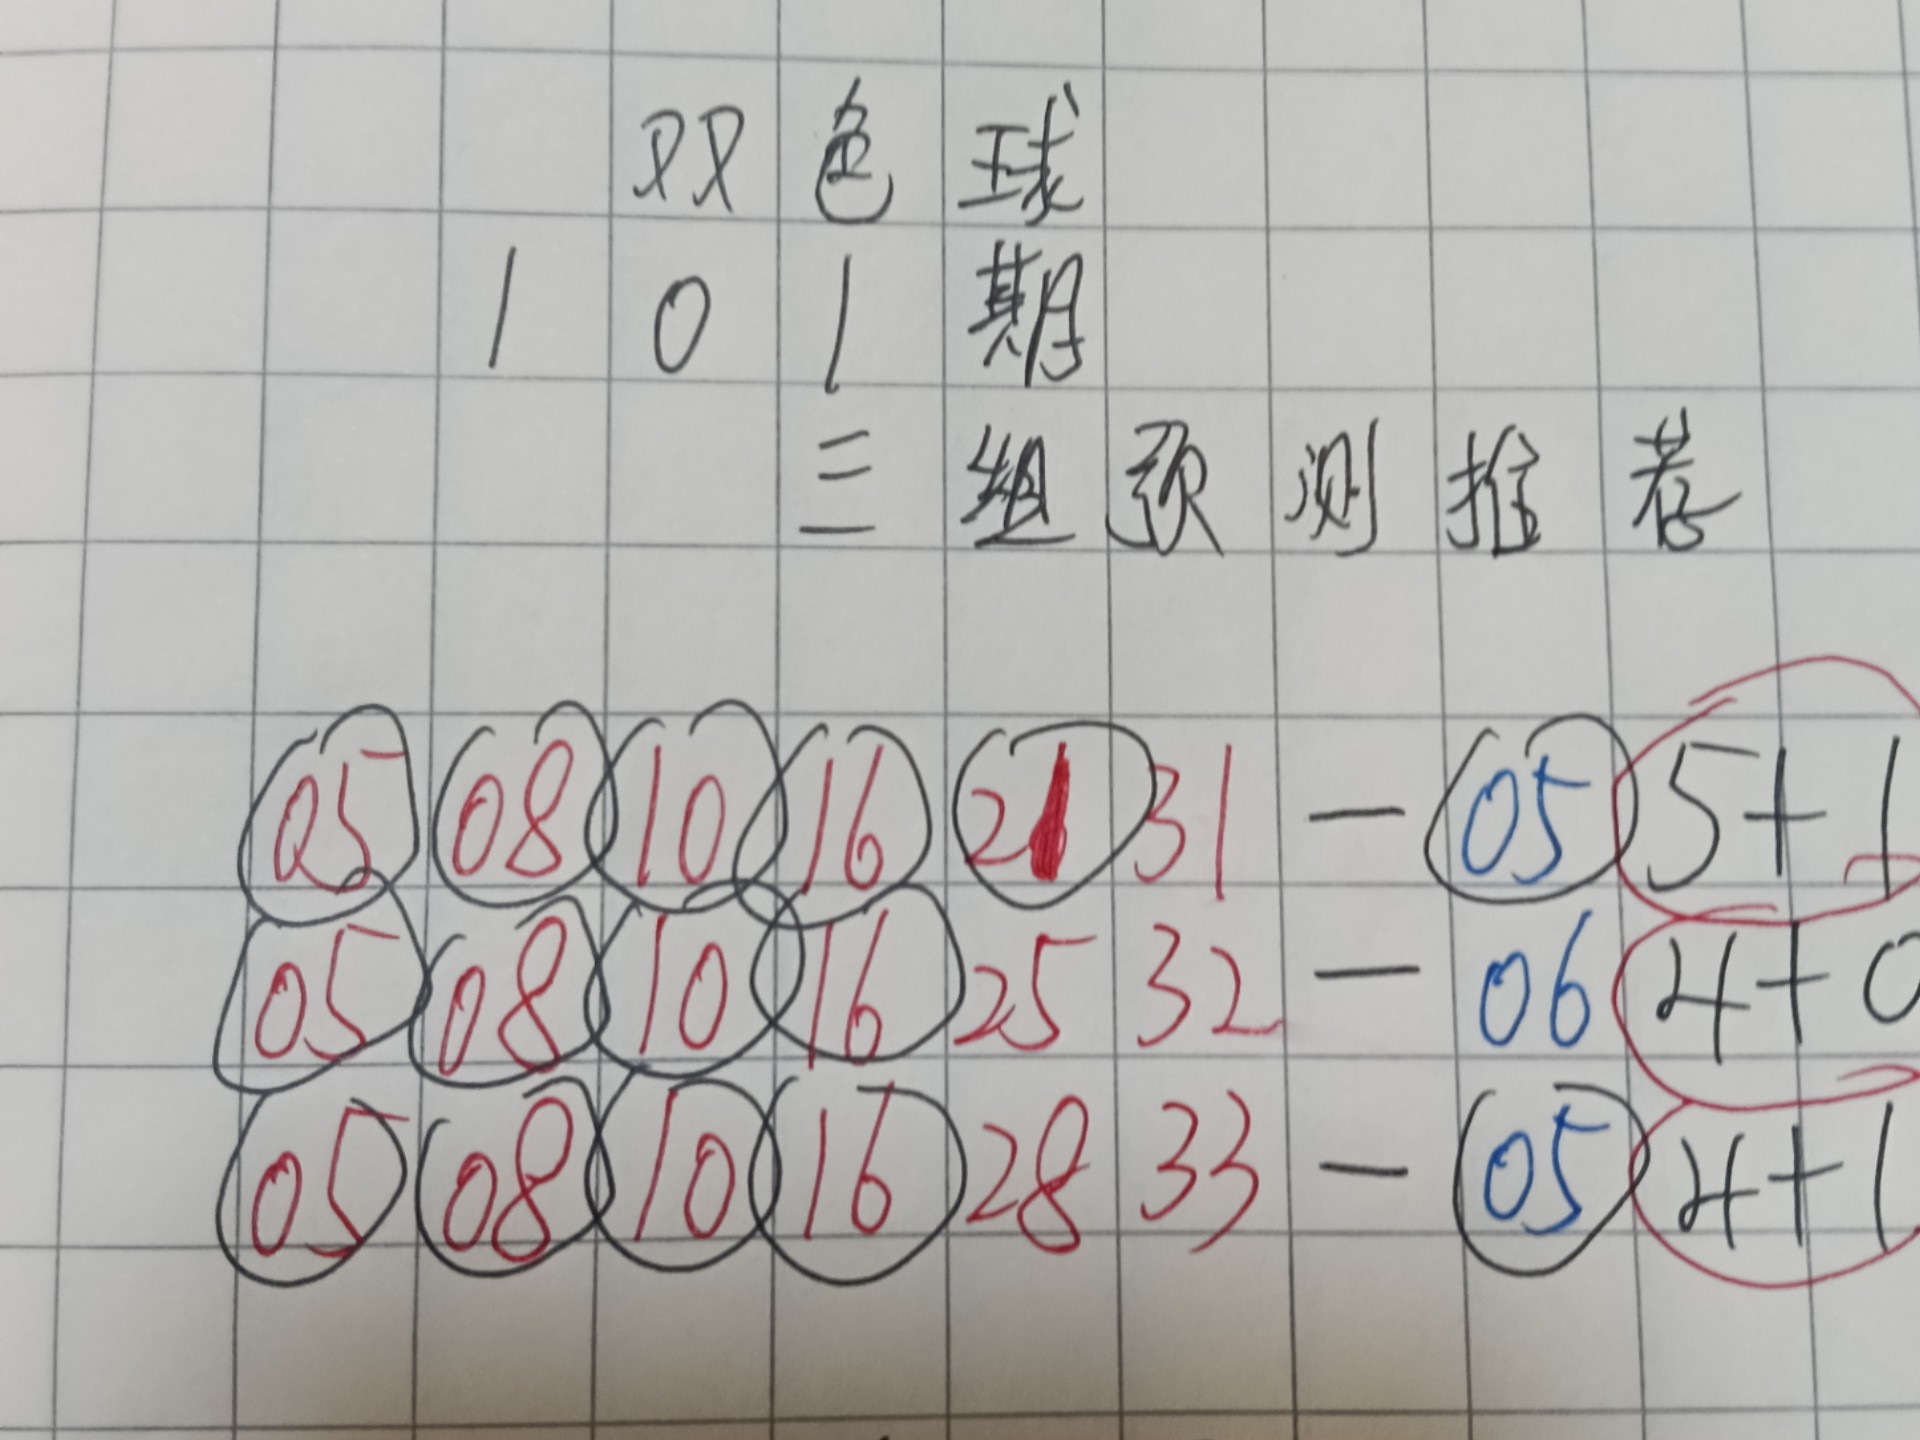 双色球
101期
三组预测推荐
05 08 10 16 21 31 — 05 5+1
05 08 10 16 25 32 — 06 4+0
05 08 10 16 28 33 — 05 4+1